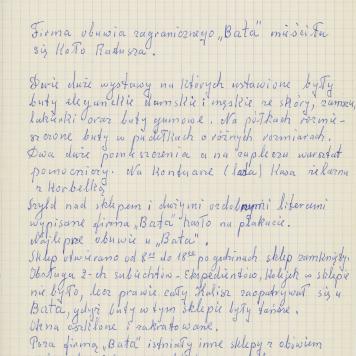 Firma obuwia zagranicznego „Bata" mieściła
się koło Ratusza.
Dwie duże wystawy na których ustawione były
buty eleganckie damskie i męskie ze skóry, zamszu,
lakierki oraz buty gumowe. Na półkach rozmie-
szczone buty w pudełkach o różnych rozmiarach.
Dwa duże pomieszczenia a na zapleczu warsztat
pomocniczy. Na kontuarze (lada) Kasa żelazna
z korbelką
Szyld nad sklepem i dużymi ozdobnymi literami
wypisane firma „Bata" hasło na plakacie.
Najlepsze obuwie u „Bata".
Sklep otwierano od 8⁰⁰ do 18⁰⁰ po godzinach sklep zamknięty.
Obsługa 2-ch subiektów - Ekspedientów, Kolejek w sklepie
nie było, lecz prawie cały Kalisz zaopatrywał się u
Bata, gdyż buty w tym sklepie były tańsze.
Okna oszklone i zakratowane.
Poza firmą „Bata" istniały inne sklepy z obuwiem